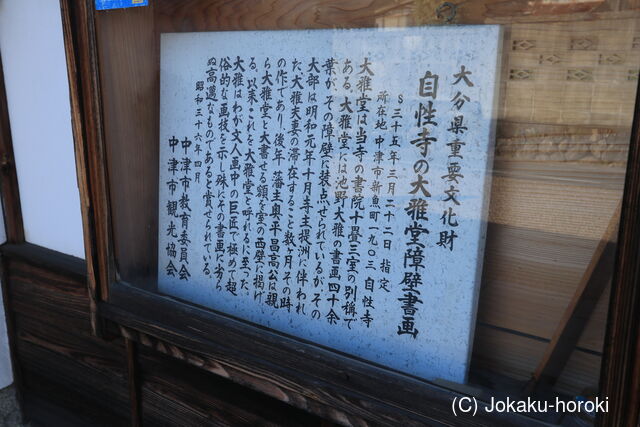 大分県重要文化財
自性寺の大雅堂障壁書画
S三十五年三月二十二日 指定
所在地 中津市新魚町一九〇三 自性寺
大雅堂は当寺の書院十畳三室の別稱で
ある。大雅堂には池野大雅の書画四十余
葉が、その障壁に装点せられているが、その
大部は明和元年十月寺主提洲に伴われ
た、大雅夫妻の滞在すること数ヶ月その時
の作であり、後年、藩主奥平昌高公は親
ら大雅堂と大書せる額を室の西壁に掲げ
る。以来これを大雅堂と呼れるに至った。
大雅はわが文人画中の巨匠で極めて超
俗的な画技を示し殊にその書画に劣ら
ぬ高邁なものであると賞せられている。
昭和三十六年四月
中津市教育委員会
中津市観光協会
(C) Jokaku-horoki